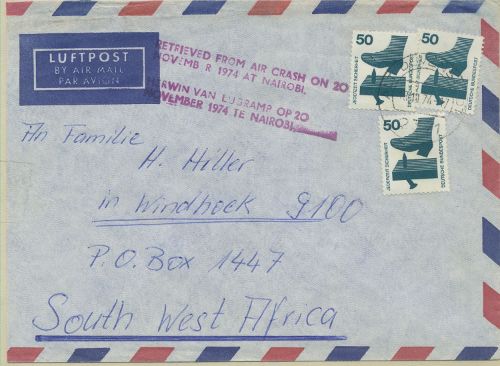 LUFTPOST
BY AIR MAIL
PAR AVION
RETRIEVED FROM AIR CRASH ON 20
NOVEMB R 1974 AT NAIROBI.
ERWIN VAN LUGRAMP OP 20
VEMBER 1974 TE NAIROBI.
50
50
50
JEDERZEIT SICHERHEIT
DEUTSCHE BUNDESPOST
JEDERZEIT SICHERHEIT
DEUTSCHE BUNDESPOST
JEDERZEIT SICHERHEIT
DEUTSCHE BUNDESPOST
An Familie
H. Hiller
in Windhoek 9100
P.O. Box 1447
South West Africa